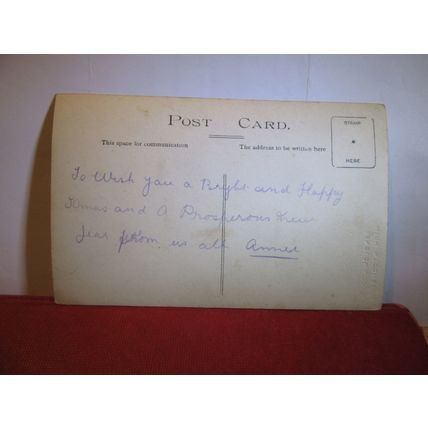 POST CARD.
This space for communication
The address to be written here
STAMP
HERE
To Wish you a Bright and Happy
Xmas and A Prosperous New
Year from us all Annie